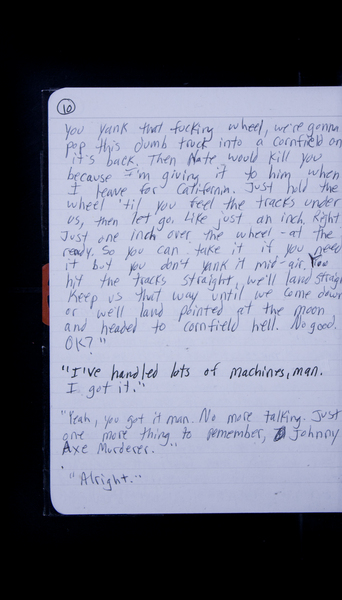 10
you yank that fucking wheel, we're gonna
pop this dumb truck into a cornfield on
it's back. Then Nate would kill you
because I'm giving it to him when
I leave for California. Just hold the
wheel 'til you feel the tracks under
us, then let go. Like just an inch. Right
Just one inch over the wheel - at the
ready. So you can take it if you need
it but you don't yank it mid-air. You
hit the tracks straight, we'll land straight
Keep us that way until we come down
or we'll land pointed at the moon
and headed to cornfield hell. No good.
OK?"
"I've handled lots of machines, man.
I got it."
"Yeah, you got it man. No more talking. Just
one more thing to remember, Johnny
Axe Murderer."
"Alright."